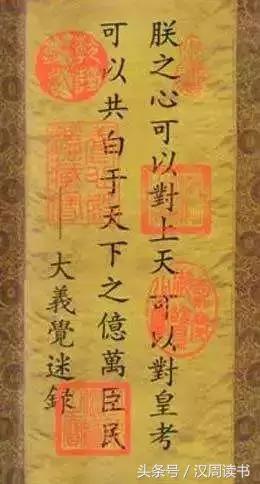 朕之心可以對上天可以對皇考
可以共白于天下之億萬臣民
大義覺迷錄
头条号／汉周读书